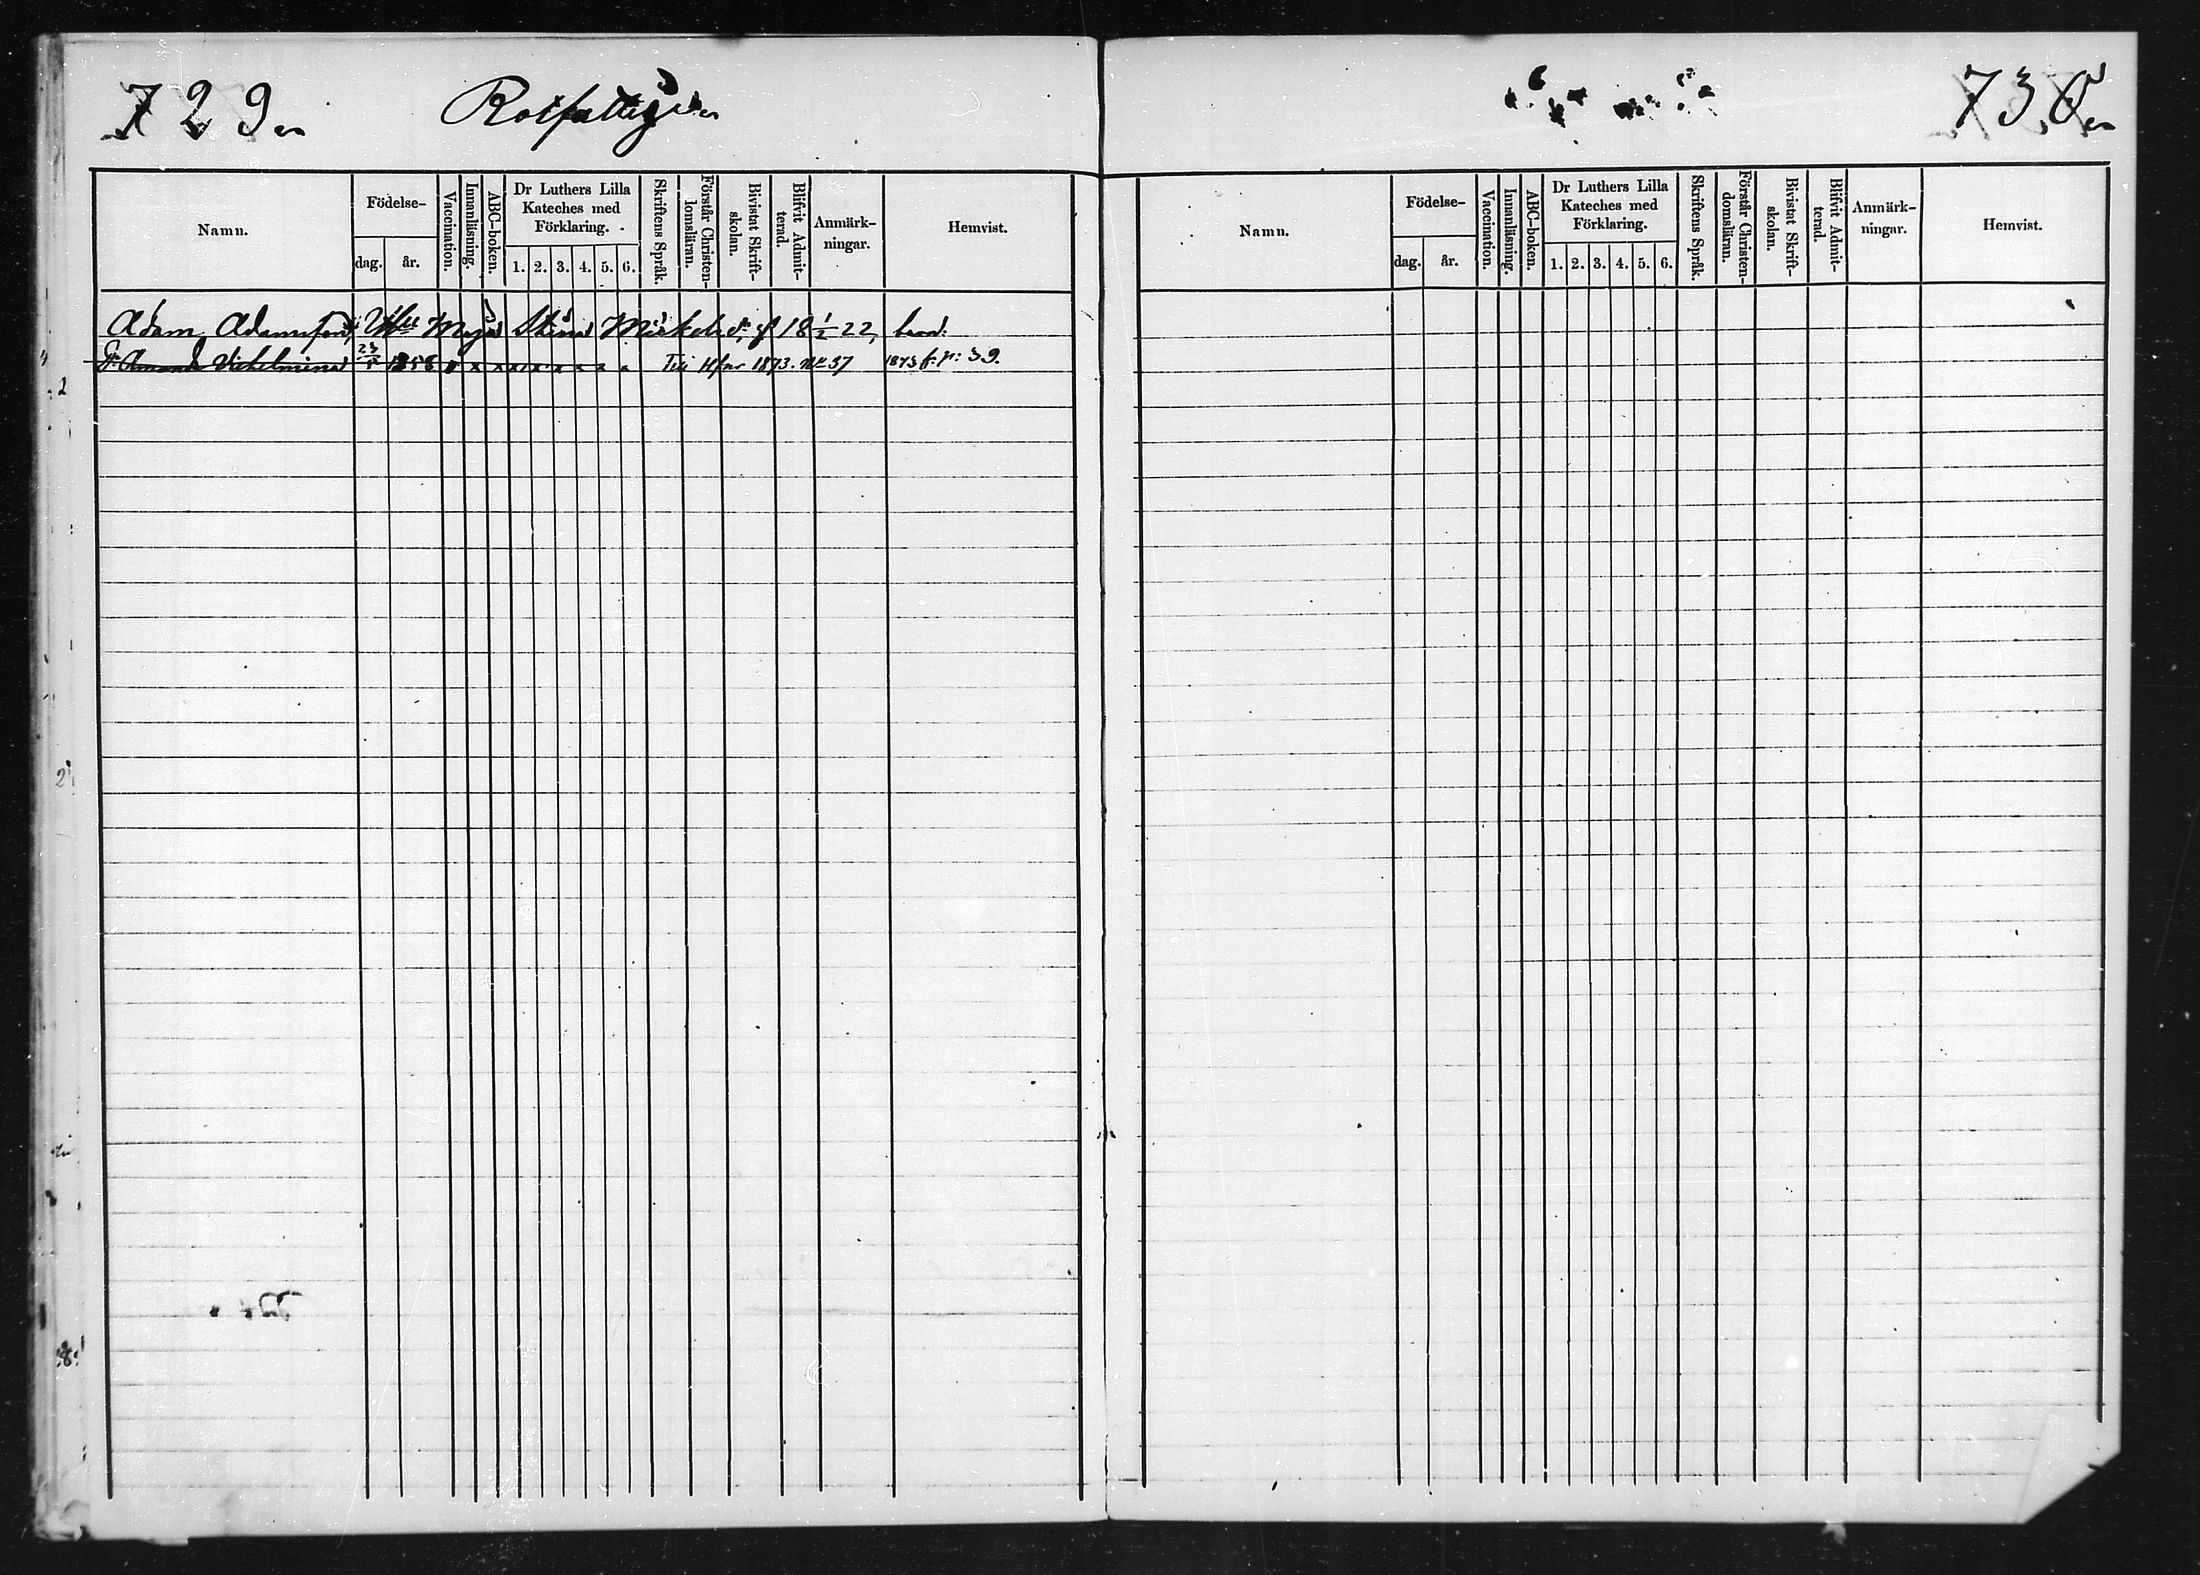 729
Rotfattige
Namn.
Födelse-
dag.
år.
Vaccination.
Innanläsning.
ABC-boken.
Dr Luthers Lilla
Kateches med
Förklaring.
1. 2. 3. 4. 5. 6.
Skriftens Språk.
Förstår Christen-
domsläran.
Bivistat Skrift-
skolan.
Blifvit Admit-
terad.
Anmärk-
ningar.
Hemvist.
Adam Adamsson, Maja Stina Mickelsd:
D. Amanda Vilhelmina 23/5 1858 x x x x x x x x Till 1873. No 37 1873 p: 39.
730
Namn.
Födelse-
dag.
år.
Vaccination.
Innanläsning.
ABC-boken.
Dr Luthers Lilla
Kateches med
Förklaring.
1. 2. 3. 4. 5. 6.
Skriftens Språk.
Förstår Christen-
domsläran.
Bivistat Skrift-
skolan.
Blifvit Admit-
terad.
Anmärk-
ningar.
Hemvist.